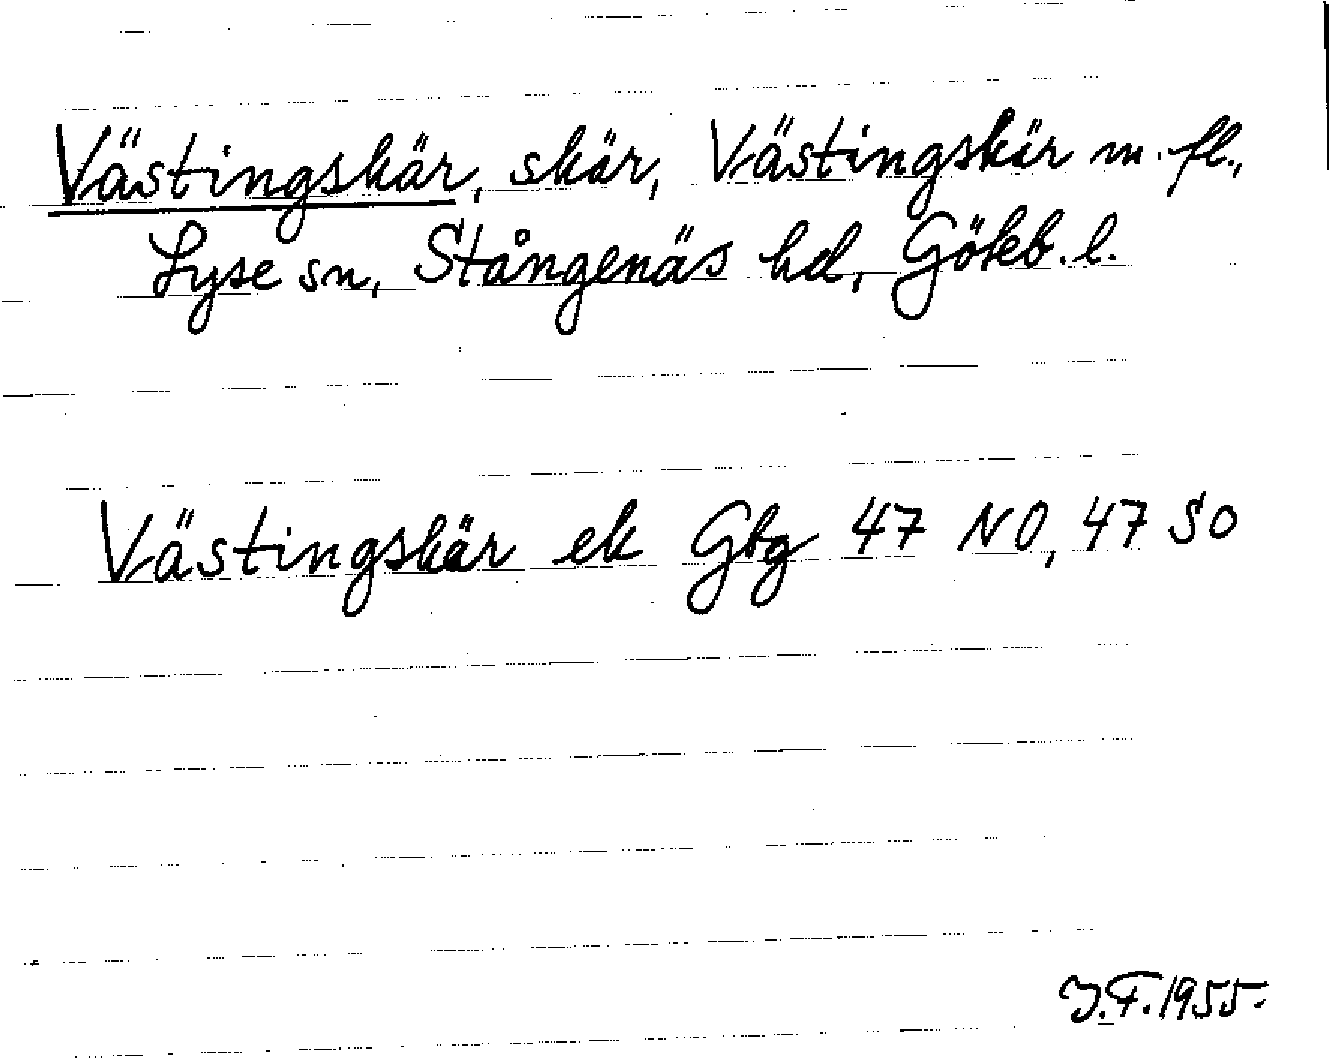 Västingskär, skär, Västingskär m. fl.,
Lyse sn, Stångenäs hd, Göteb. l.
Västingskär ek Gbg 47 NO, 47 SO
J.F. 1955.